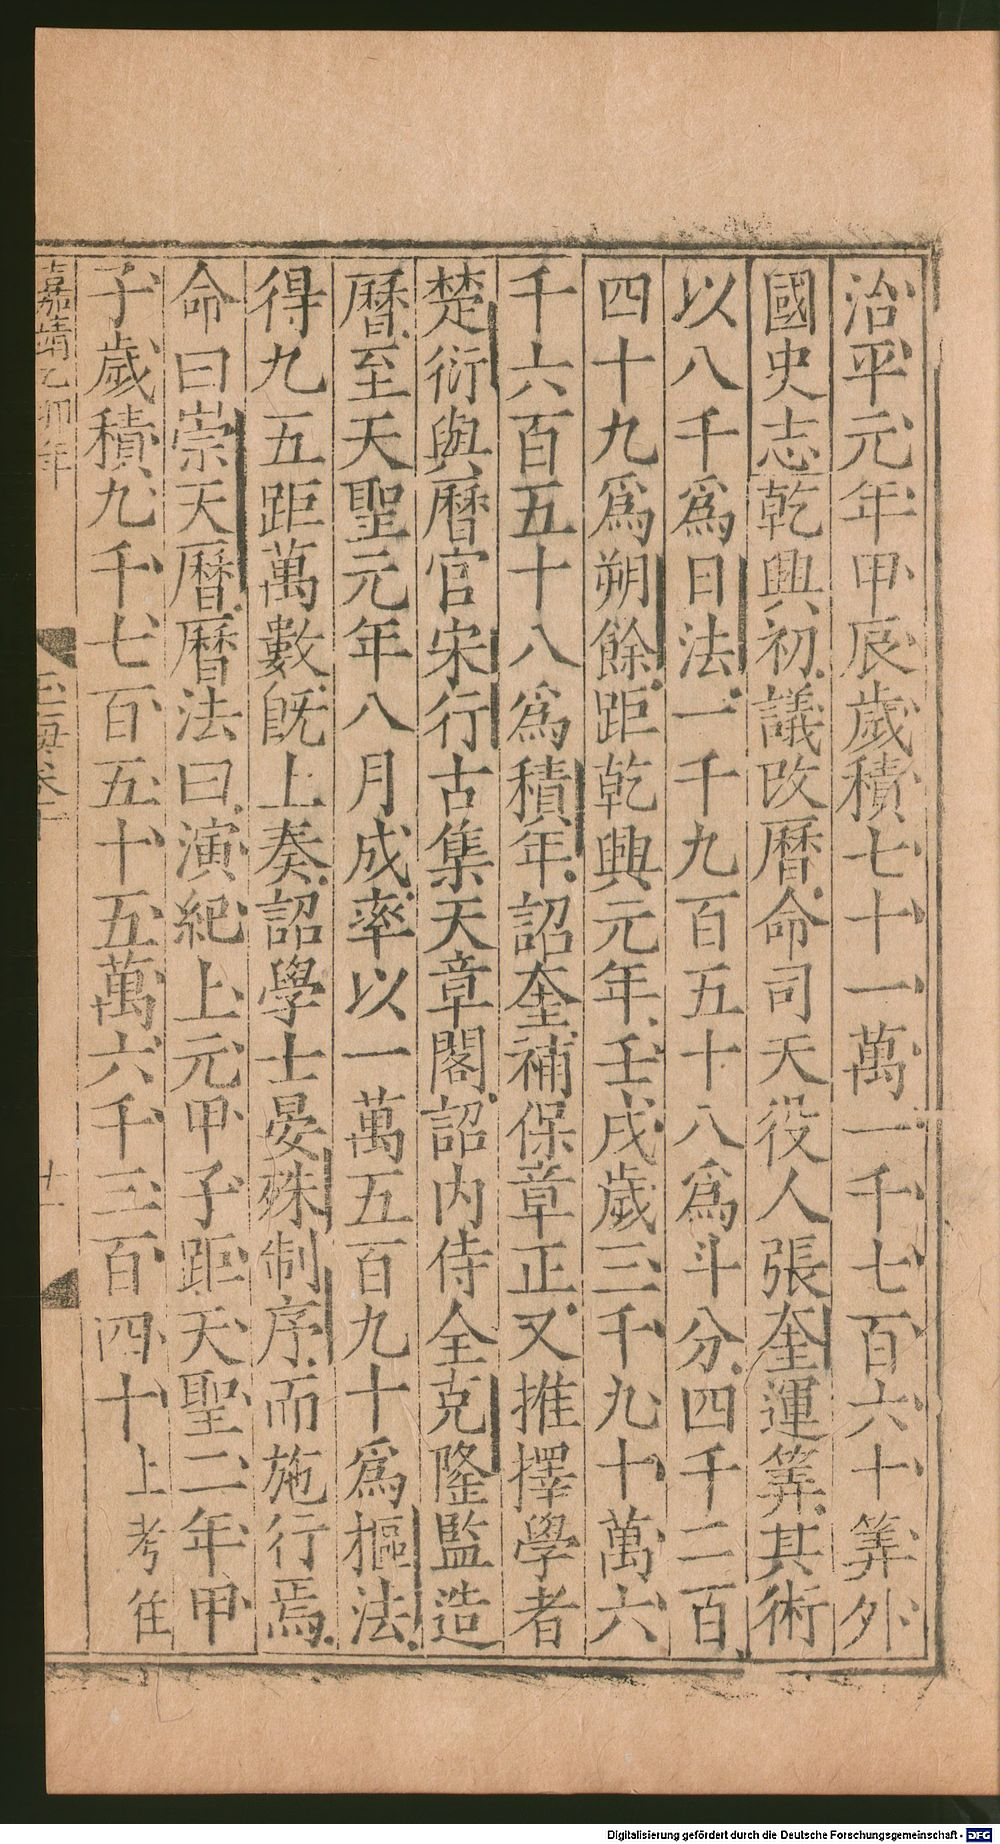 治平元年甲辰歲積七十一萬一千七百六十筭外
國史志乾興初議改曆命司天役人張奎運筭其術
以八千爲日法一千九百五十八爲斗分四千二百
四十九爲朔餘距乾興元年壬戌歲三千九十萬六
千六百五十八爲積年詔奎補保章正又推擇學者
楚衍與曆官宋行古集天章閣詔内侍金克隆監造
曆至天聖元年八月成率以一萬五百九十爲樞法
得九五距萬數旣上奏詔學士晏殊制序而施行焉
命曰崇天曆曆法曰演紀上元甲子距天聖二年甲
子歲積九千七百五十五萬六千三百四十上考往
嘉靖乙卯年 玉海卷十 十一
Digitalisierung gefördert durch die Deutsche Forschungsgemeinschaft - DFG